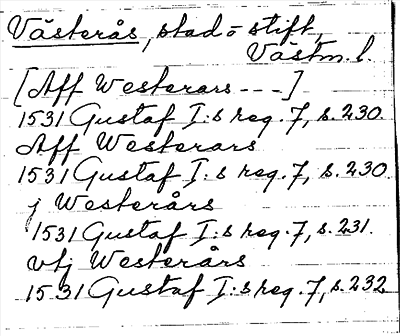 Västerås, stad o stift,
Västm. l.
[Aff Westerars - - -]
1531 Gustaf I:s reg. 7, s. 230.
Aff Westerars
1531 Gustaf I:s reg. 7, s. 230.
j Westerårs
1531 Gustaf I:s reg. 7, s. 231.
vtj Westerårs
1531 Gustaf I:s reg. 7, s. 232